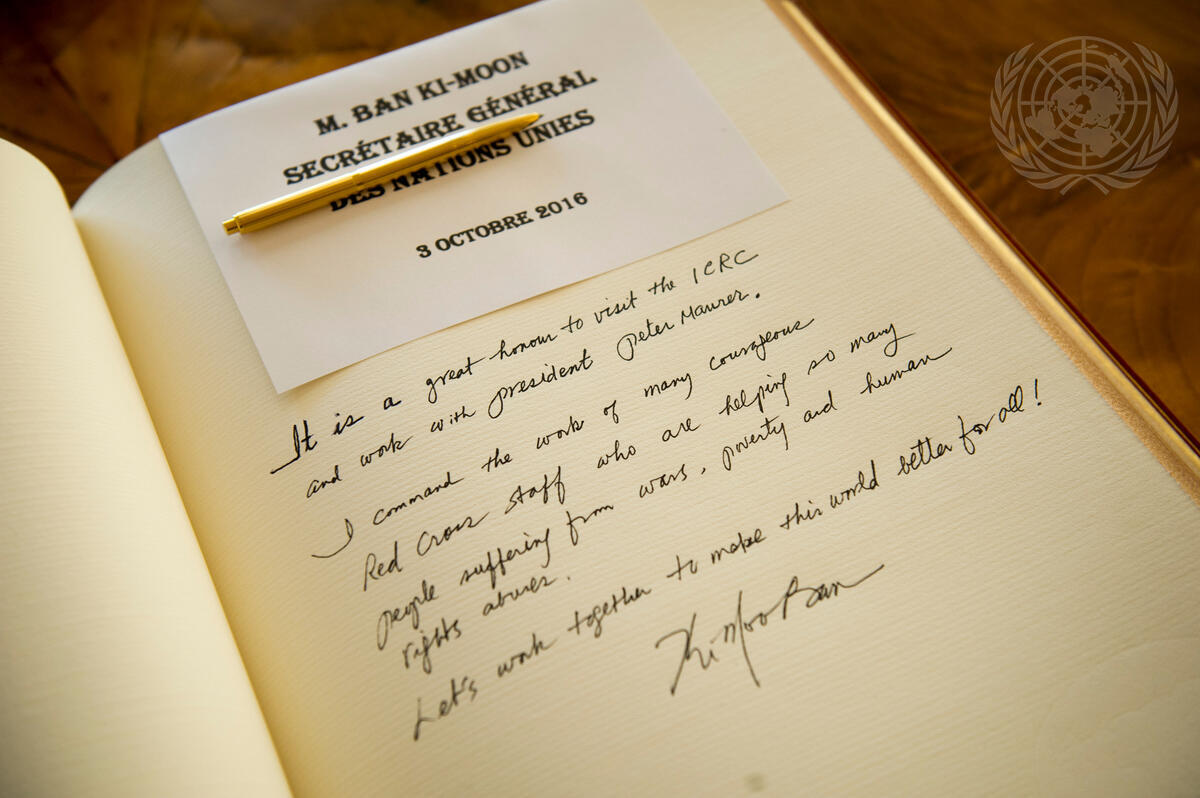 M. BAN KI-MOON
SECRÉTAIRE GÉNÉRAL
DES NATIONS UNIES
3 OCTOBRE 2016
It is a great honour to visit the ICRC
and work with president Peter Maurer.
I command the work of many courageous
Red Cross staff who are helping so many
people suffering from wars, poverty and human
rights abuses.
Let's work together to make this world better for all!
Ki Moo Ban